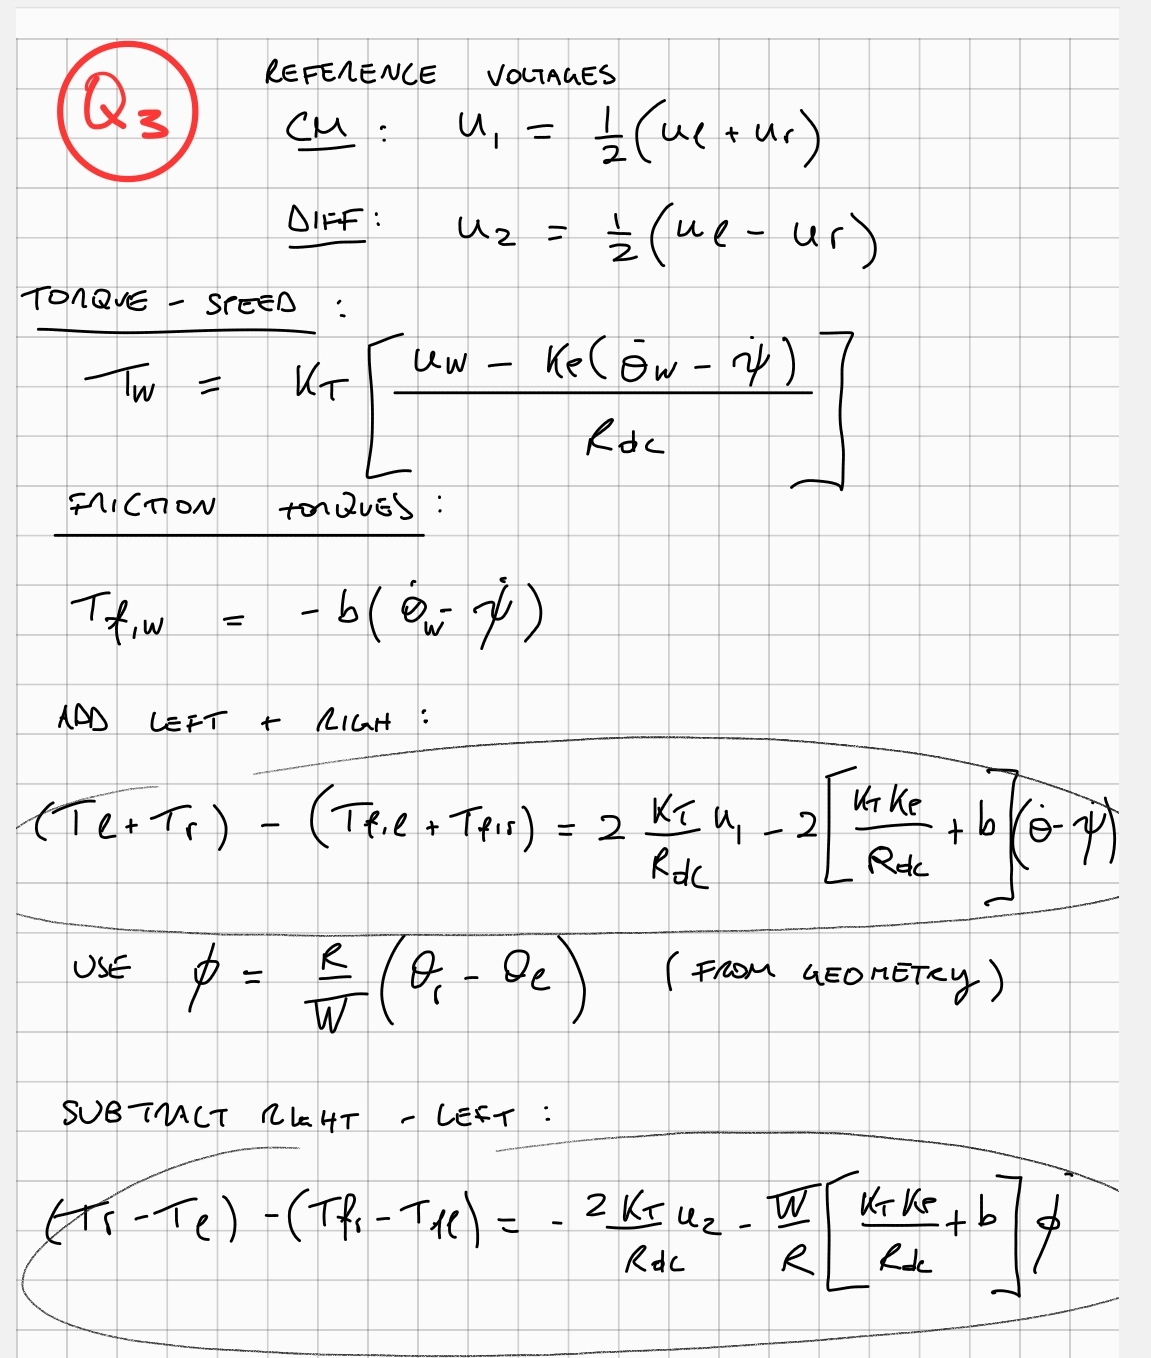 Q3
REFERENCE VOLTAGES
CM : u₁ = 1/2 (uℓ + ur)
DIFF : u₂ = 1/2 (uℓ - ur)
TORQUE - SPEED :
Tw = KT [ (uw - Ke(θ̇w - ψ̇)) / Rdc ]
FRICTION TORQUES :
Tf,w = - b(θ̇w - ψ̇)
ADD LEFT + RIGH :
(Tℓ + Tr) - (Tf,ℓ + Tf,r) = 2 KT/Rdc u₁ - 2 [ KT Ke/Rdc + b ] (θ̇ - ψ̇)
USE ϕ = R/W (θr - θℓ) (FROM GEOMETRY)
SUBTRACT RIGHT - LEFT :
(Tr - Tℓ) - (Tfr - Tfℓ) = - 2 KT/Rdc u₂ - W/R [ KT Ke/Rdc + b ] ϕ̇